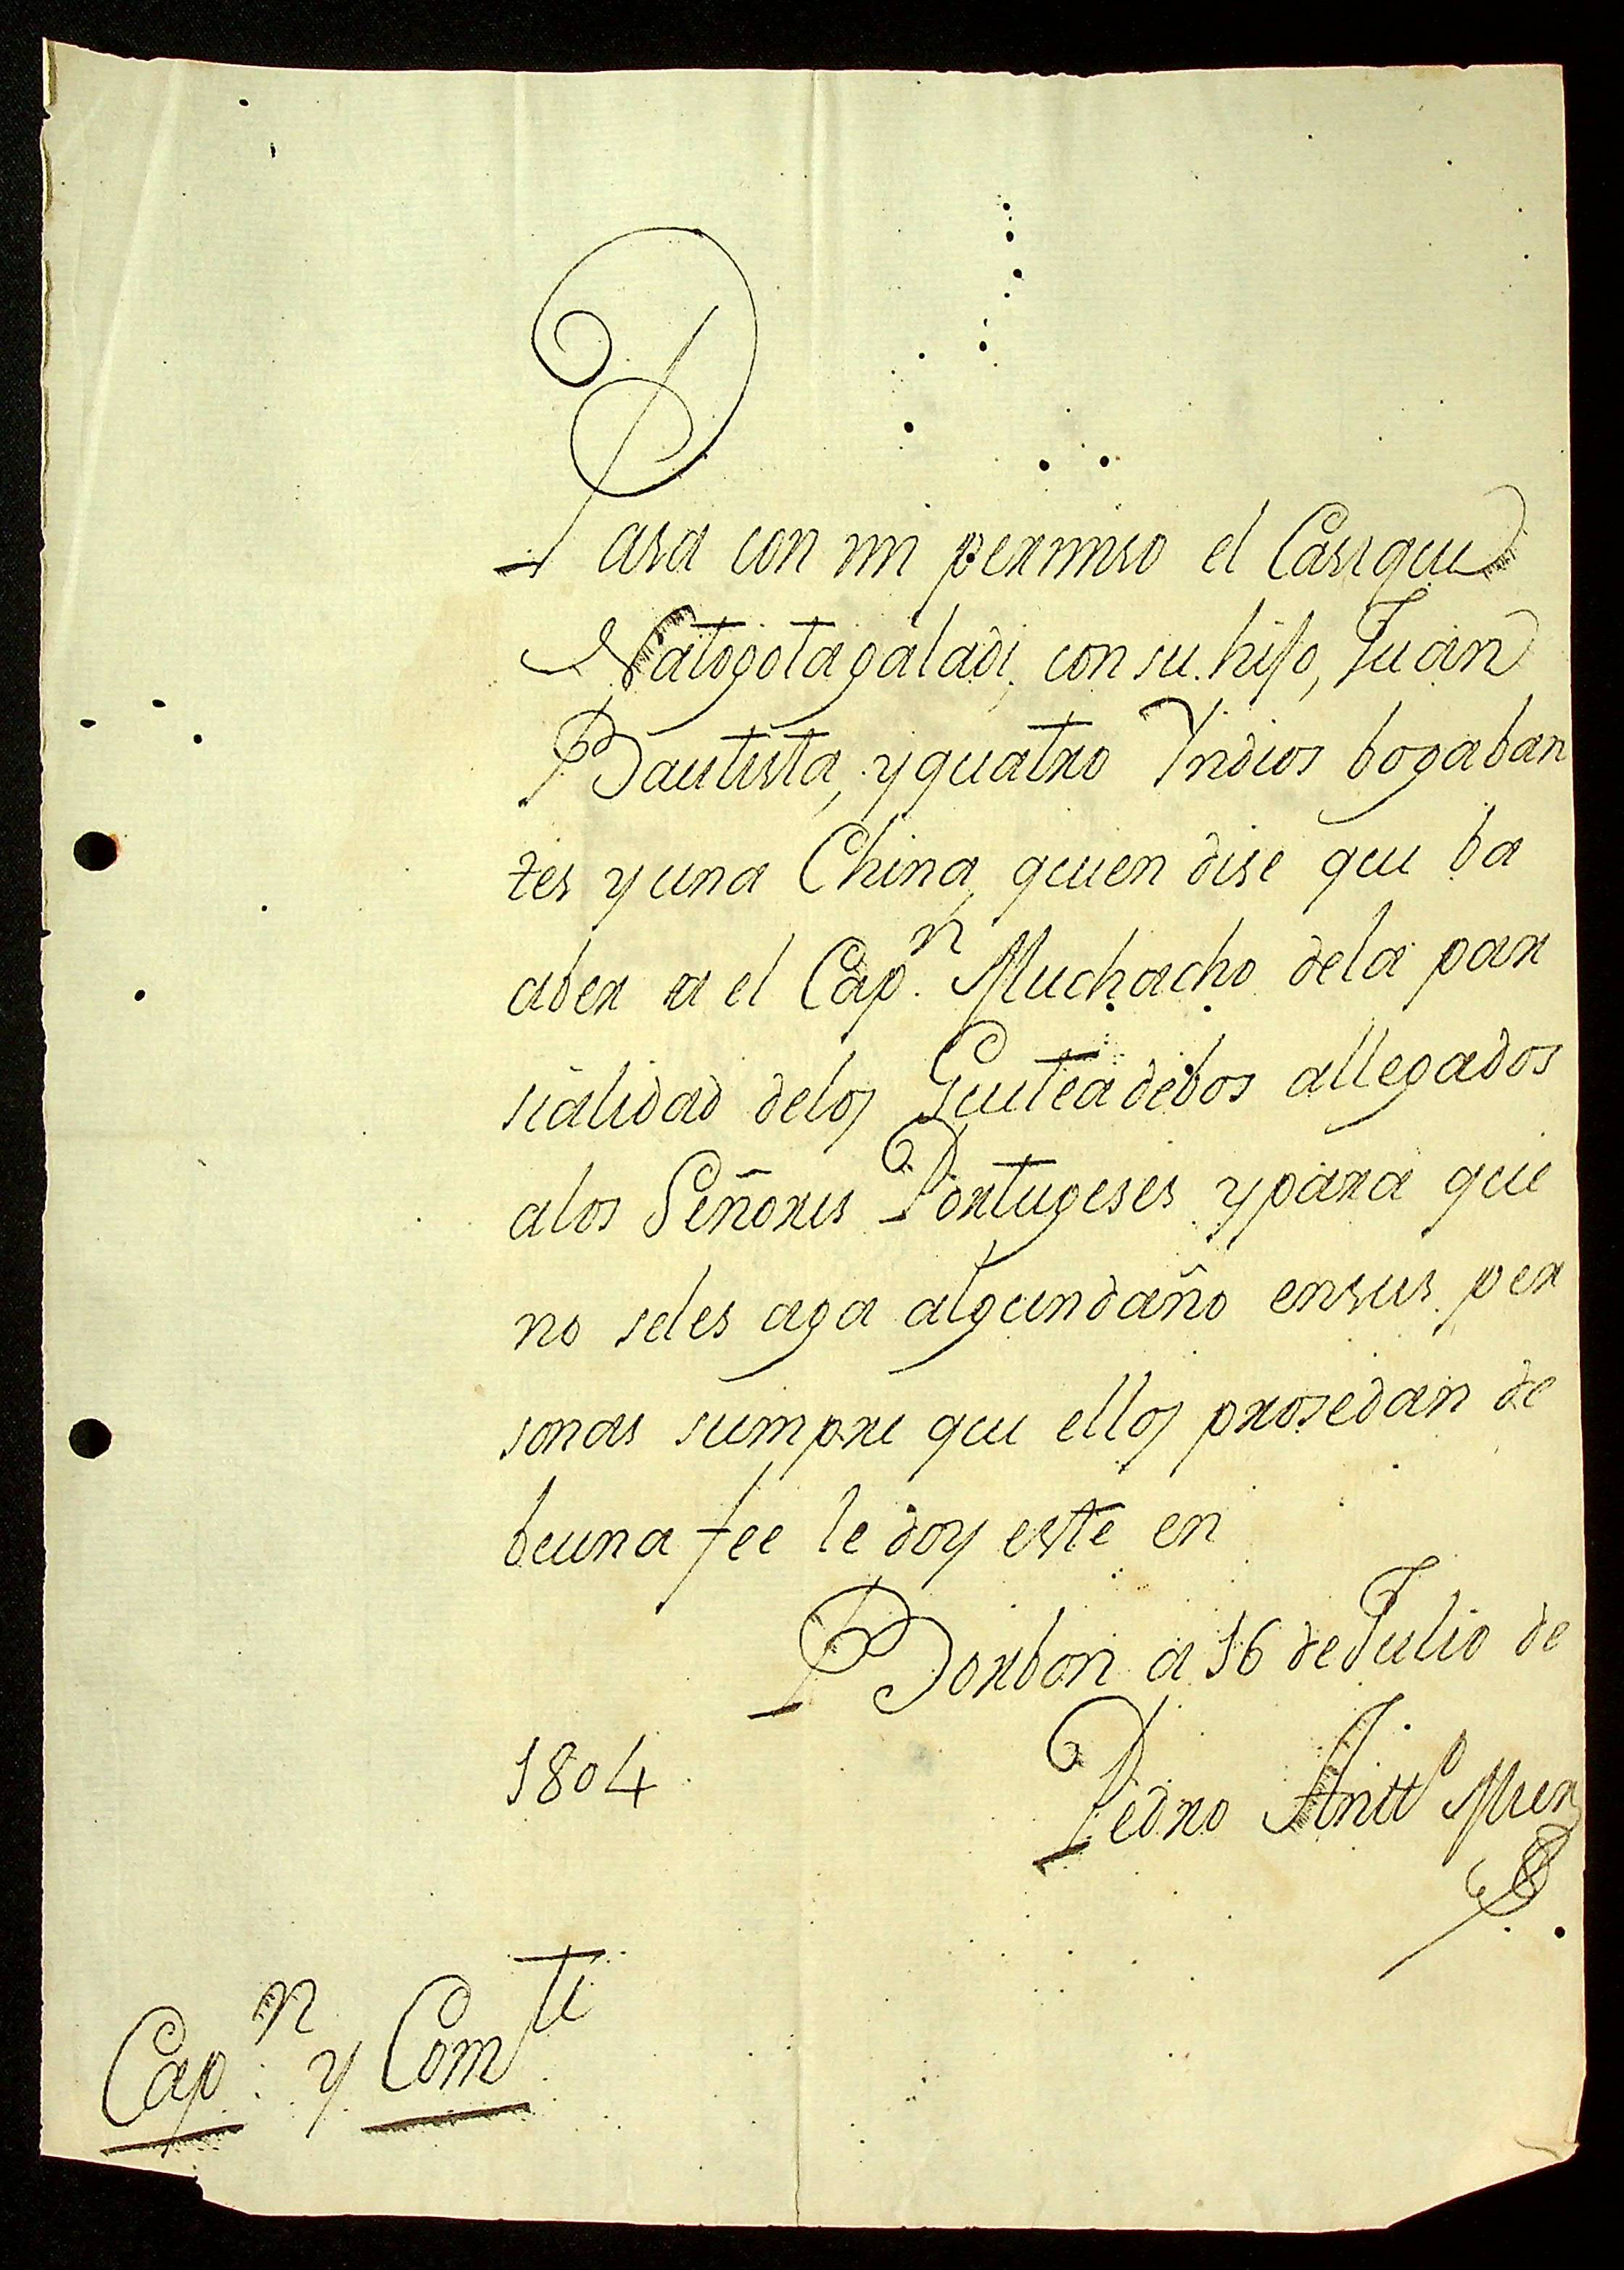 Pasa con mi permiso el Casique
Natogotagaladi, con su hijo, Juan
Bautista, y quatro Yndios bogaban
tes y una China, quien dise que ba
aber a el Cap.n Muchacho dela par
sialidad delos Guteadebos allegados
alos Señores Portugeses y para que
no seles aga algundaño ensus per
sonas siempre que ellos prosedan de
buena fee le doy este en
Borbon a 16 de Julio de
1804
Pedro Antto Mier
Cap.n y Comte